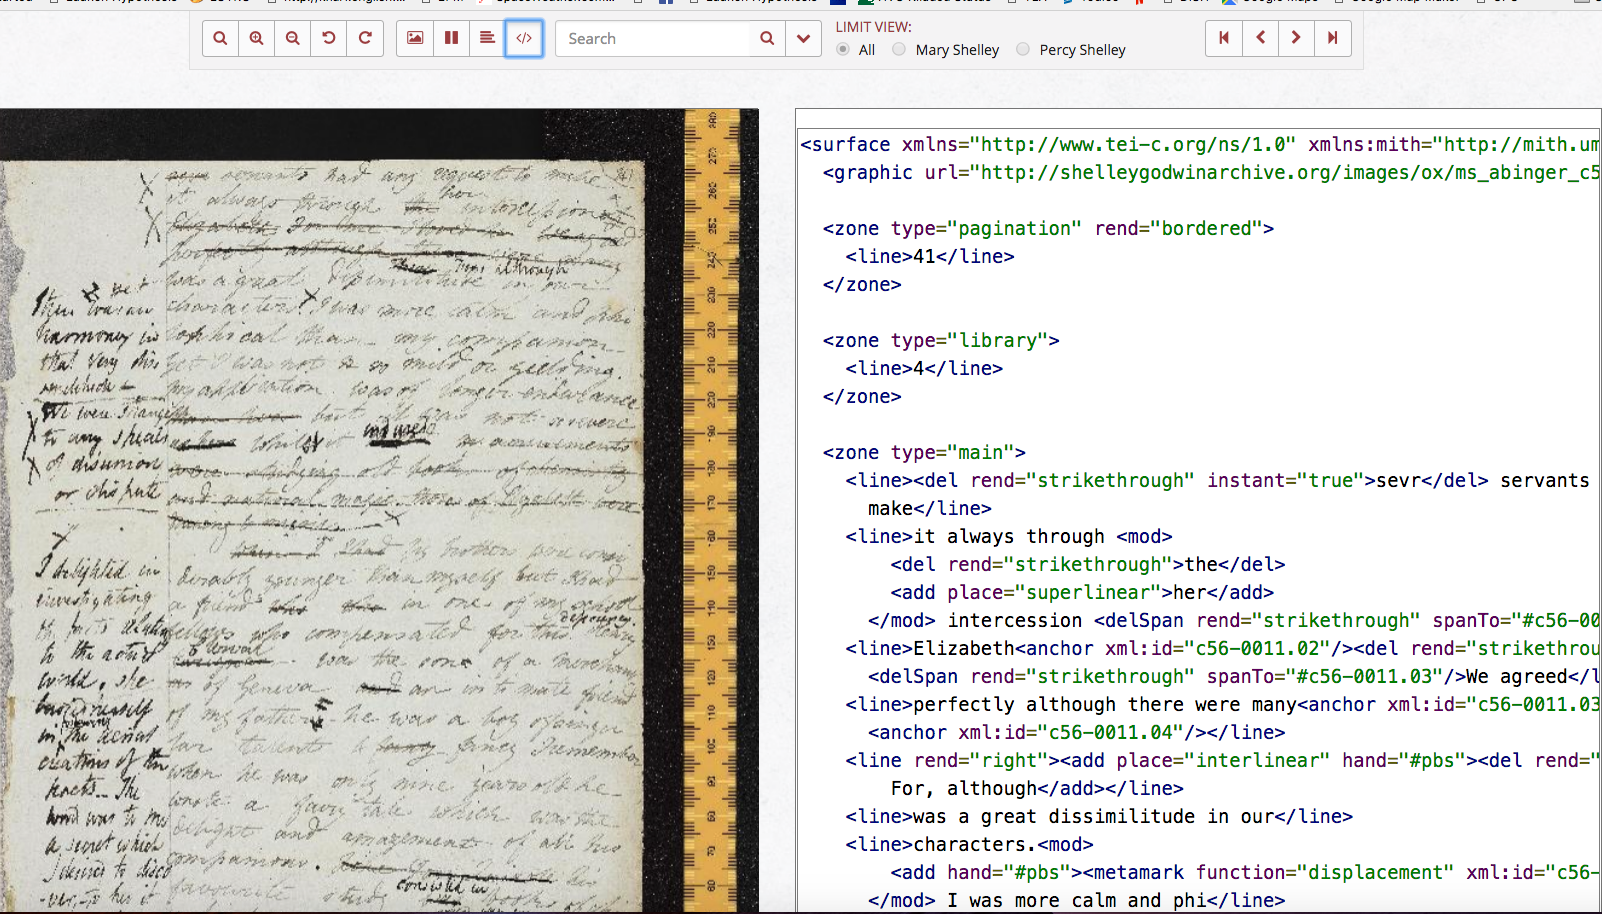 Search
LIMIT VIEW:
All Mary Shelley Percy Shelley
servants had any request to make
her
it always through the intercession
Then although
was a great dissimilitude in our
characters. I was more calm and phi
losophical than my companion
yet I was not so mild or yielding.
My application was of longer endurance
but it was not so severe
whilst it endured
amusements
yet
there was an
harmony in
that very dis
similitude
We were strangers
to any species
of disunion
or dispute
My brothers were consi
derably younger than myself but I had
a friend in one of my school
fellows who compensated for this deficiency. Henry
Clerval was the son of a merchant
of Geneva an intimate friend
of my father he was a boy of singu
lar talent & fancy I remember
when he was only nine years old he
wrote a fairy tale which was the
delight and amazement of all his
companions. his
favourite study consisted in books of
I delighted in
investigating
the facts relative
to the actual
world, she
busied herself
in following the aerial
creations of the
poets. The
world was to me
a secret which
I desired to disco
ver, to her it
<surface xmlns="http://www.tei-c.org/ns/1.0" xmlns:mith="http://mith.um
<graphic url="http://shelleygodwinarchive.org/images/ox/ms_abinger_c5
<zone type="pagination" rend="bordered">
<line>41</line>
</zone>
<zone type="library">
<line>4</line>
</zone>
<zone type="main">
<line><del rend="strikethrough" instant="true">sevr</del> servants
make</line>
<line>it always through <mod>
<del rend="strikethrough">the</del>
<add place="superlinear">her</add>
</mod> intercession <delSpan rend="strikethrough" spanTo="#c56-00
<line>Elizabeth<anchor xml:id="c56-0011.02"/><del rend="strikethrou
<delSpan rend="strikethrough" spanTo="#c56-0011.03"/>We agreed</l
<line>perfectly although there were many<anchor xml:id="c56-0011.03
<anchor xml:id="c56-0011.04"/></line>
<line rend="right"><add place="interlinear" hand="#pbs"><del rend="
For, although</add></line>
<line>was a great dissimilitude in our</line>
<line>characters.<mod>
<add hand="#pbs"><metamark function="displacement" xml:id="c56-
</mod> I was more calm and phi</line>